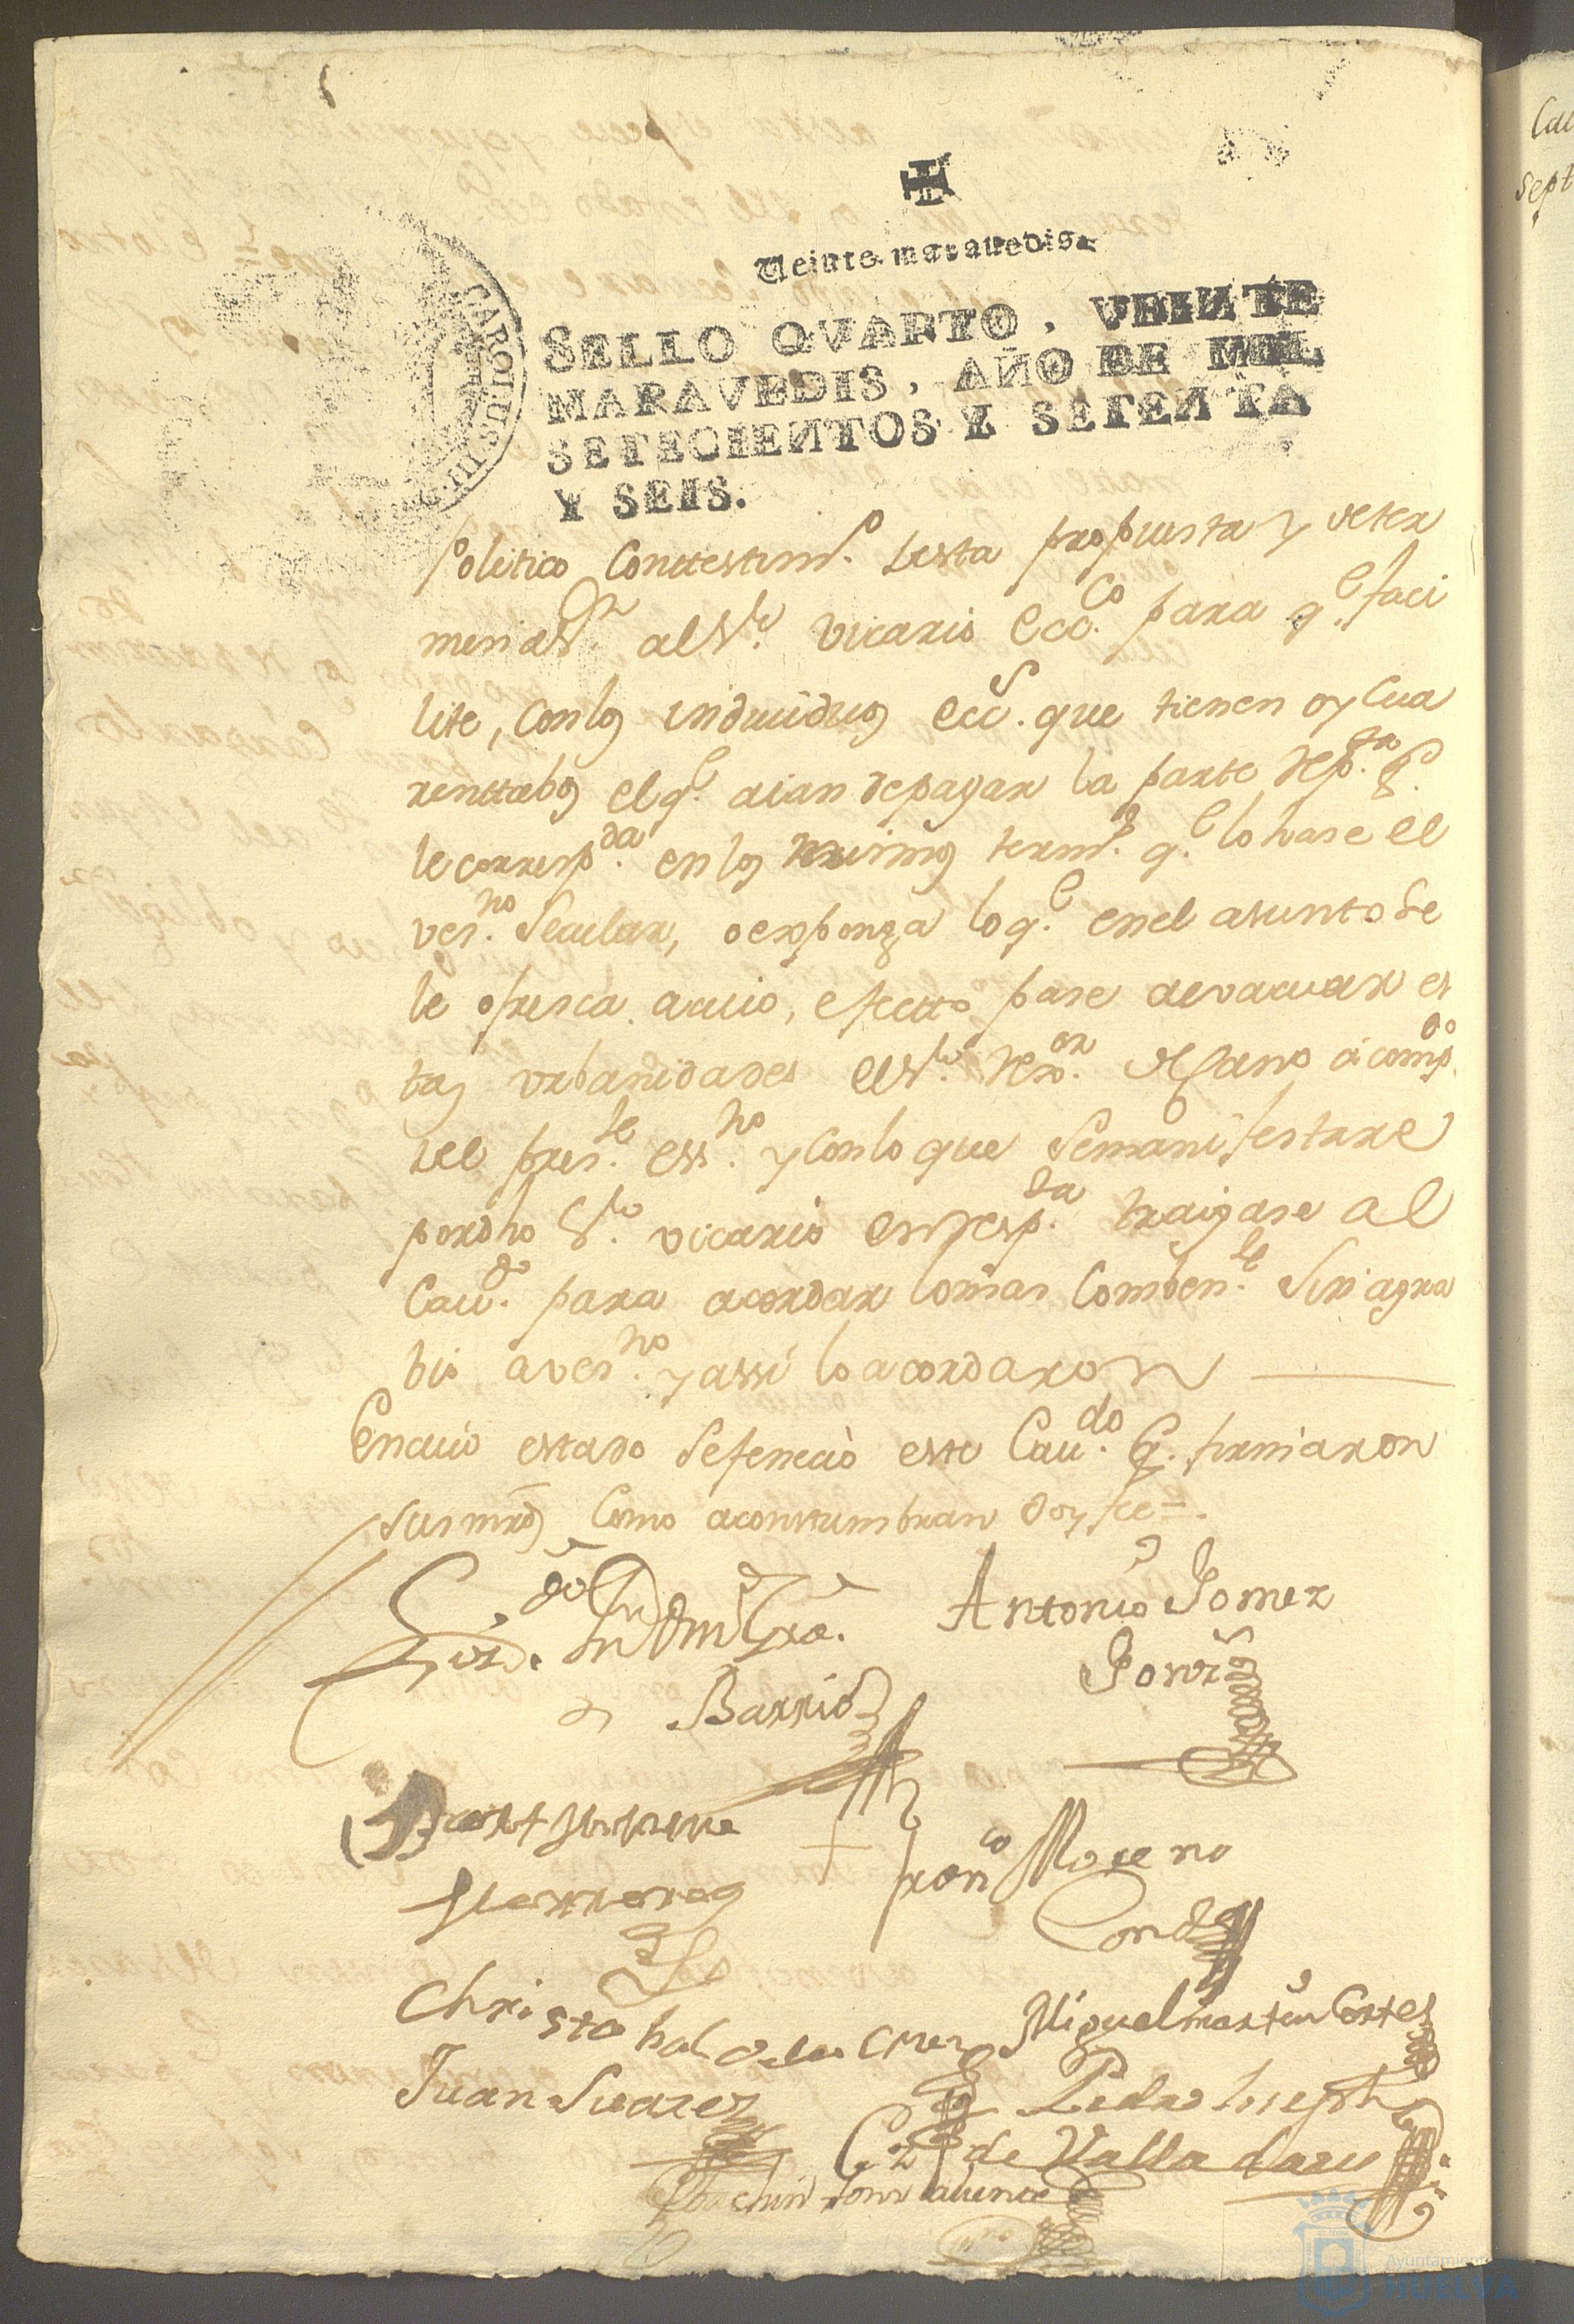 Veinte maravedis.
SELLO QVARTO, VEINTE
MARAVEDIS, AÑO DE MIL
SETECIENTOS Y SETENTA
Y SEIS.
CAROLUS III
Politico Conttestimo. desta propuesta y deter
minasn. al Sor. Vicario Ecc.co para q.e faci
lite, con los individuos ecc.s que tienen oy Cua
renttabos el q.e aian de pagar la parte
le corresp.da en los mismos term.s q.e lo hase el
ves.no Secular, o exponga lo q.e en el asunto se
le ofresca. a cuio, efecto pase a evacuar es
tas urbanidades el Sor.
del pres.te ess.no y con lo que se manifestare
por dho Sor. Vicario en resp.ta traigase al
Cau.do para acordar lo mas Comben.te Sin agra
bio a ves.no y assi lo acordaron
En cuio estado se feneció este Cau.do q. firmaron
sus mrds Como acostumbran doy fee=.
Barrios
Antonio Gomez
Franco Moreno
Conde
Christobal de la Cruz
Miguel martin Cortes
Juan Suarez
Pedro Joseph
de Valladares
Cau
Sept
Ayuntamiento
HUELVA